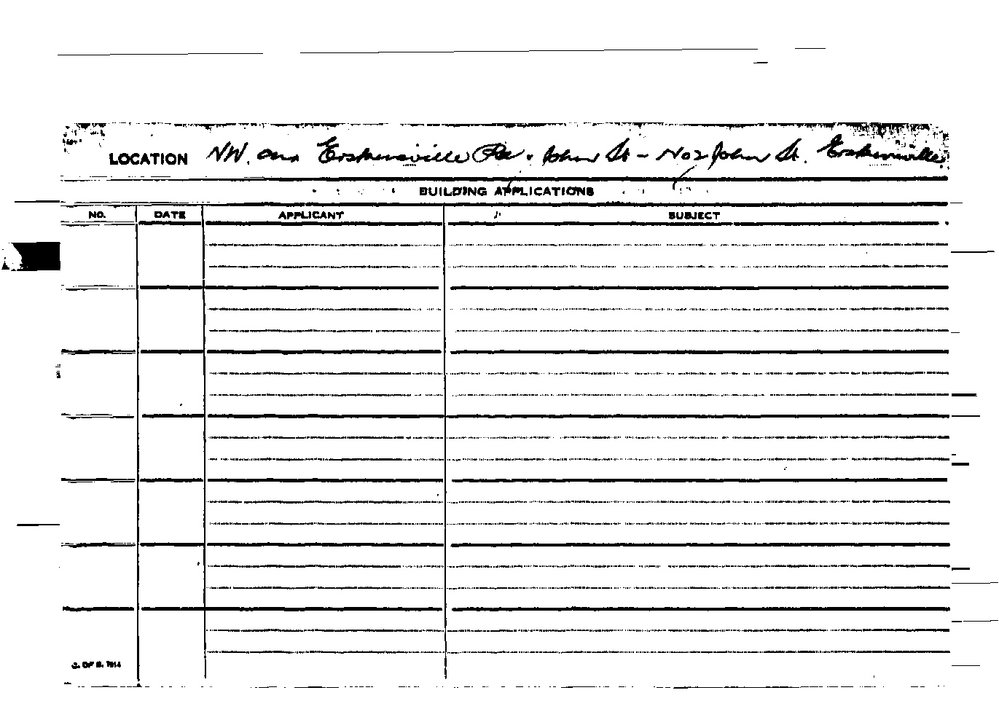 LOCATION NW. cnr Erskineville Rd. John St - No 2 John St. Erskineville
BUILDING APPLICATIONS
NO. DATE APPLICANT SUBJECT